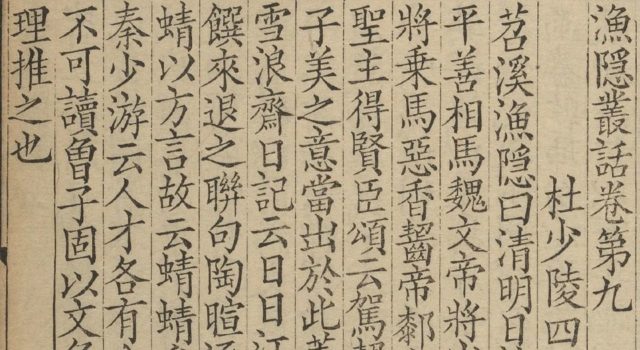 漁隱叢話卷第九
杜少陵四
苕溪漁隱曰清明日
平善相馬魏文帝將
將乗馬惡香齧帝𰯌
聖主得賢臣頌云駕
子美之意當出於此
雪浪齋日記云日日江
饌來退之聯句陶暄
蜻以方言故云蜻蜻
秦少游云人才各有
不可讀曾子固以文
理推之也